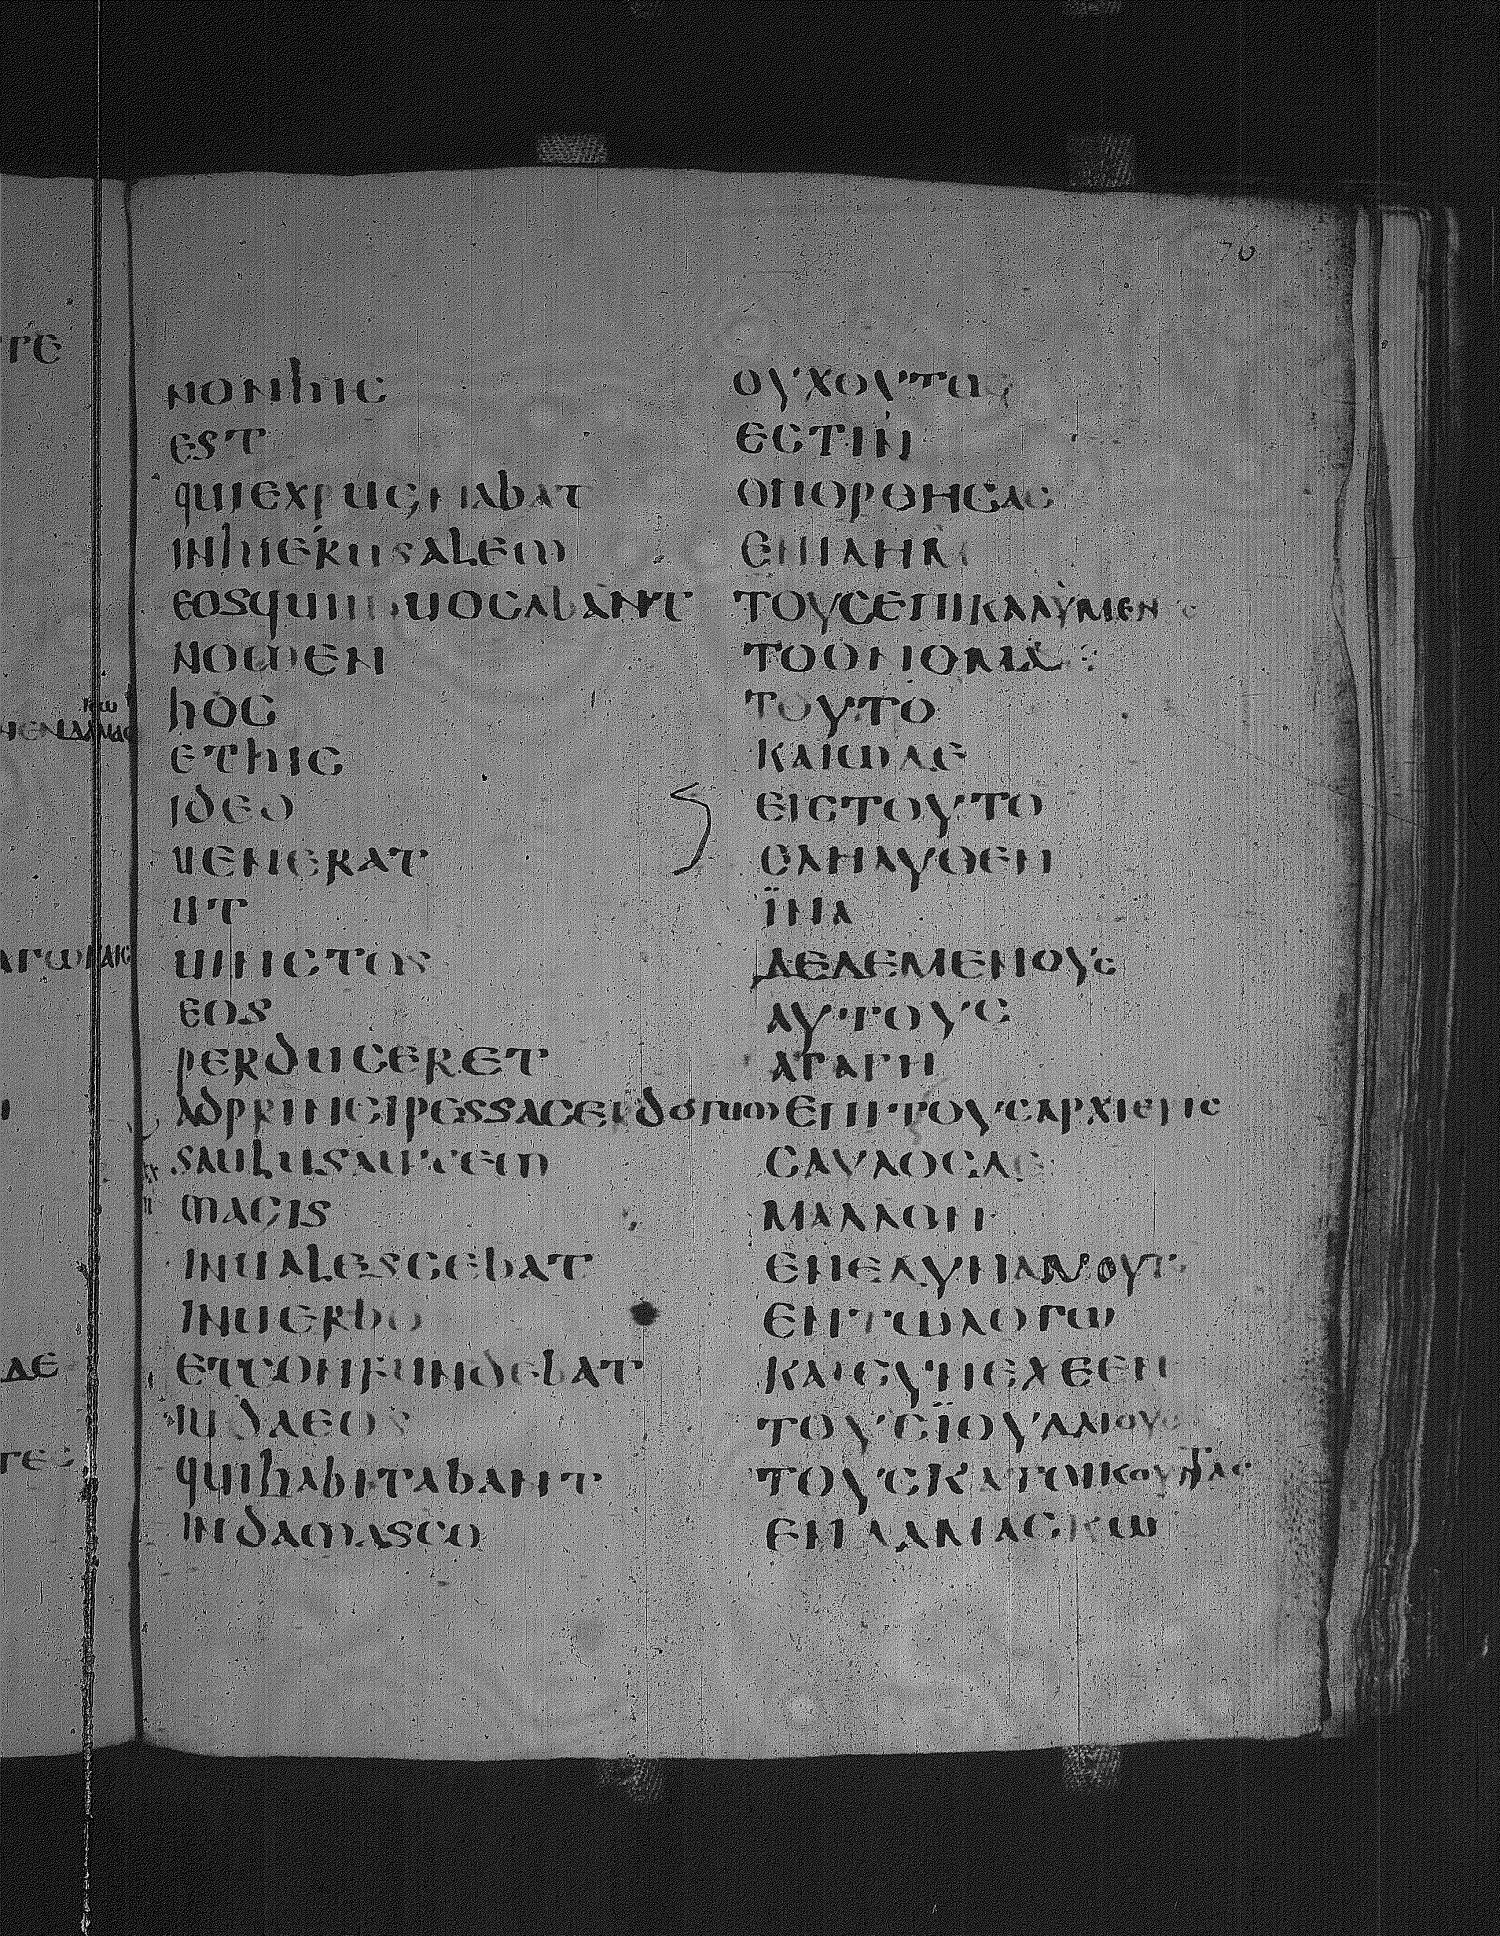 70
NONHIC
EST
QUIEXPUGNABAT
INHIERUSALEM
EOSQUI UOCABANT
NOMEN
HOC
ETHIC
IDEO
UENERAT
UT
UINCTOS
EOS
PERDUCERET
ADPRINCIPESSACERDOTUM
SAULUSAUTEM
MAGIS
INUALESCEBAT
INUERBO
ETCONFUNDEBAT
IUDAEOS
QUIHABITABANT
INDAMASCO
ΟΥΧΟΥΤΟΣ
ΕCΤΙΝ
ΟΠΟΡΘΗCΑC
ΕΙΛΗΜ
ΤΟΥCΕΠΙΚΑΛΥΜΕΝ
ΤΟΟΝΟΜΑ
ΤΟΥΤΟ
ΚΑΙΩΔΕ
ΕΙCΤΟΥΤΟ
ΕΛΗΛΥΘΕΝ
ΪΝΑ
ΔΕΔΕΜΕΝΟΥC
ΑΥΤΟΥC
ΑΓΑΓΗ
ΕΠΙΤΟΥCΑΡΧΙΕΡΙC
CΑΥΛΟCΔΕ
ΜΑΛΛΟΝ
ΕΝΕΔΥΝΑΜΟΥΤ
ΕΝΤΩΛΟΓΩ
ΚΑΙCΥΝΕΧΕΕΝ
ΤΟΥCΪΟΥΔΑΙΟΥC
ΤΟΥCΚΑΤΟΙΚΟΥΝΤΑC
ΕΝΔΑΜΑCΚΩ